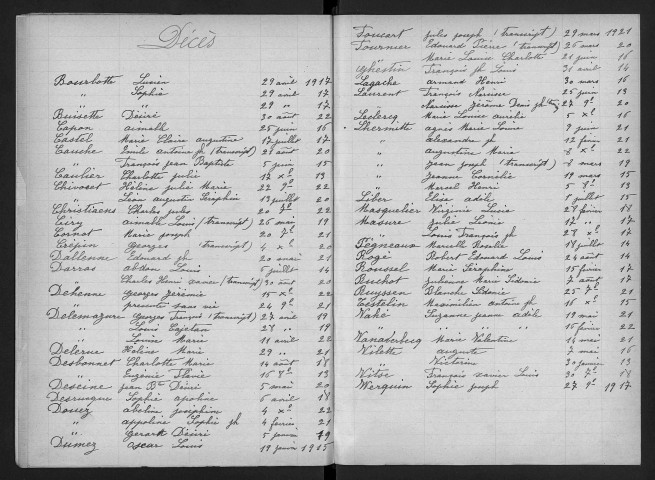 Décès
Bourbotte Lucien 29 avril 1917
" Sophie 29 avril 17
" " 29 " 17
Buisette Désiré 30 août 22
Capon aimable 25 juin 16
Castel Marie Claire augustine 17 juillet 17
Cauche Emile antoine jh (transcript) 21 août 20
" François jean Baptiste 5 juin 15
Caulier Charlotte julie 17 Xbre 13
Chivoset Hélène julie Marie 22 9bre 22
" Léon augustin Séraphin 13 juillet 20
Christiaens Charles jules 20 7bre 22
Ciry aimable Louis (transcript) 26 mai 19
Cornot Marie joseph 20 7bre 21
Crépin Georges (transcript) 4 Xbre 20
Dallenne Edouard jh 20 mai 21
Darras abdon Louis 6 juillet 14
Charles Henri xavier (transcript) 30 août 20
Dehenne Georges Jérémie 15 Xbre 21
" présenté sans vie 24 9bre 21
Delemazure Georges François (transcript) 27 avril 19
" Louis Cajetan 28 " 19
" Louise Marie 11 avril 22
Delerue Hélène Marie 29 " 21
Desbonnet Charlotte Marie 14 août 18
" Eugénie Flavie 16 8bre 13
Descine jean Bte Désiré 5 mai 20
Desruuque Sophie apoline 6 avril 18
Douez abeline josephine 4 Xbre 22
" appoline Sophie jh 4 février 21
" Gérard Désiré 5 janvier 19
Dumez oscar Louis 19 juin 1915
Foucart jules joseph (transcript) 29 mars 1921
Fournier Edouard Pierre (transcript) 26 mars 20
" Marie Louise Charlotte 21 juin 16
Ghestin François jh Louis 31 avril 14
Lagache armand Henri 30 mars 16
Laurent François Narcisse 25 juin 13
" Narcisse Jérôme Denis jh 27 9bre 20
Leclercq Marie Louise aurélie 5 Xbre 16
Lhermitte agnès Marie Louise 9 juin 21
" alexandre jh 12 février 21
" augustine Marie 8 Xbre 22
" jean joseph (transcript) 8 mars 19
" Jeanne Cornélie 19 mars 15
" Marcel Henri 5 8bre 13
Liber Elisa adèle 8 juillet 15
Masquelier Virginie Lucie 28 février 18
Masure Julie Léonie 17 " 17
" Louis François jh 28 Xbre 17
Pégneaux Marcelle Rosalie 18 juillet 14
Rogé Robert Edouard Louis 24 août 14
Roussel Marie Séraphine 15 février 17
Ruchot Julienne Marie Sidonie 7 août 17
Ruyssen Blanche Sidonie 25 7bre 21
Testelin Maximilien antoine jh 16 Xbre 15
Vahé Suzanne jeanne adèle 19 mai 21
" " " " 16 février 22
Vanderbecq Marie Valentine 14 mai 21
Vilette auguste 7 mai 16
" Victorine 30 janvier 13
Vitse François xavier Louis 30 7bre 18
Werquin Sophie joseph 27 9bre 1917